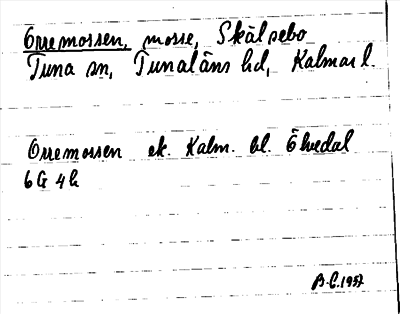 Orremossen, mosse, Skälsebo
Tuna sn, Tunaläns hd, Kalmar l.
Orremossen ek. Kalm. bl. Ölvedal
6G 4h
B.E. 1957